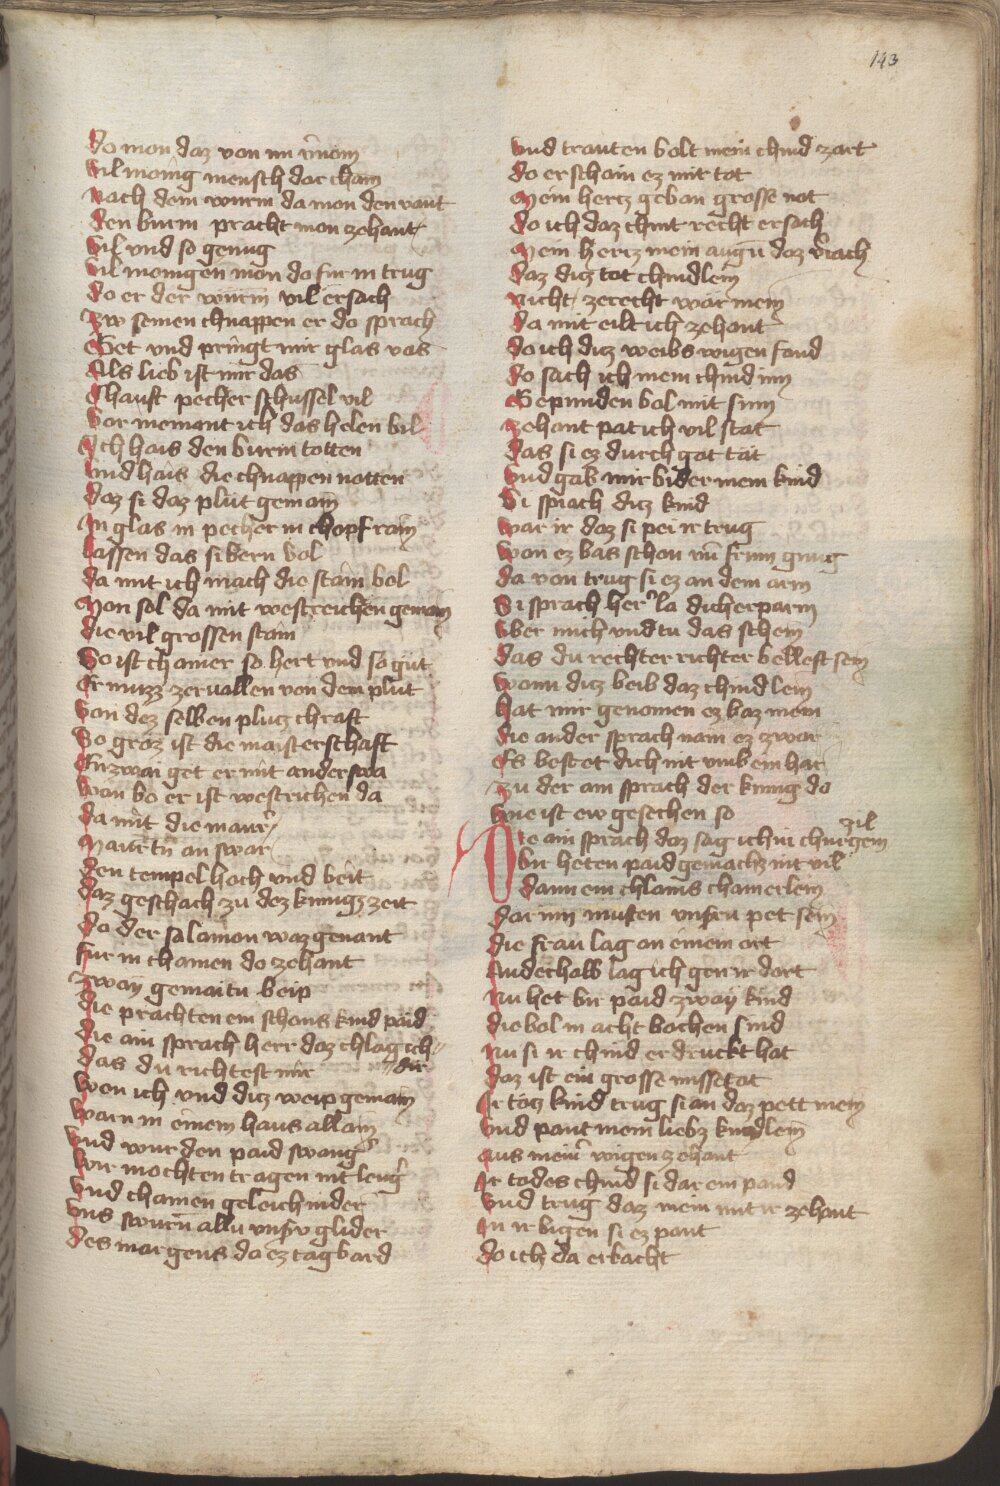 143
do mon daz von im v̄nom
vil mōnig mensch dar cham
Nach dem wurm da mon den vant
den burm pracht mon zehant
Vil vnd so genug
vil monigen mon do für in trug
do er der würm vil ersach
Zw seinen chnappen er do sprach
Get vnd pringt mir glas vas
Als lieb ist mir das
Chauft pecher schussel vil
vor niemant ich das helen bil
Ich hais den burm totten
vnd hais die chnappen notten
daz si daz plüt gemain
In glas in pecher in chopf rain
lassen das si bern bol
da mit ich mach die stain bol
Mon sol da mit westreichen gemain
die vil grossen stain
So ist chainer so hert vnd so güt
Er muzz zervallen von dem plüt
von dez selben plutz chraft
So groz ist die maisterschaft
Enzwai get er mit anderswa
wan bo er ist westrichen da
da mit die maur
Mauretn an swar
den tempel hoch vnd beit
daz geschach zu dez kunigz zeit
da der salamon waz genant
für in chamen do zehant
Zway gemaitu beip
die prachten ein schons kind paid
die ain sprach herr daz chlag ich dir
das du richtest mir
wen ich vnd ditz weip gemain
warn in einem haus allain
vnd wurden paid swang
wir mochten tragen nit leng
vnd chamen geleich nider
vns swurn allu vnsru glider
des margens da ez tag bard
vnd trauten bolt mein chind zart
do erschain ez mir tot
Mein hertz geban grosse not
do ich daz chint recht ersach
Mein hertz mein augn daz v̄iach
daz ditz tot chindlein
nicht zerecht war mein
da mit eilt ich zehant
do ich ditz weibs wigen fand
do sach ich mein chind inn
Gepunden bol mit sinn
zehant pat ich vil stat
das si ez durch got tät
vnd gab mir bider mein kind
Si sprach ditz kind
war ir daz si pei ir trug
won ez bas schon vn̄ frum gnug
da von trug si ez an dem arm
Si sprach her la dich erparm
vber mich vnd tu das schein
das du rechter richter bellest sein
wann ditz beib daz chindlein
hat mir genomen ez baz mein
die ander sprach nain ez zwar
Es bestet dich nit vmb ein har
zu der ain sprach der kunig do
wie ist ew geschehen so
Die ain sprach daz sag ich in churtzem zil
bir heten paid gemachz nit vil
dann ein chlains chamerlein
dar inn musten vnsru pet sein
die frau lag an einem ort
Anderhalb lag ich gen ir dort
nu het bir paid zway kind
die bol in acht bochen sind
nu si ir chind erdruckt hat
daz ist ein grosse missetat
Ir totz kind trug si an daz pett mein
vnd pant mein liebz kindlein
aus meinr wigen zehant
Ir todes chind si dar ein pand
vnd trug daz mein mit ir zehant
In ir bigen si ez pant
do ich da erbacht